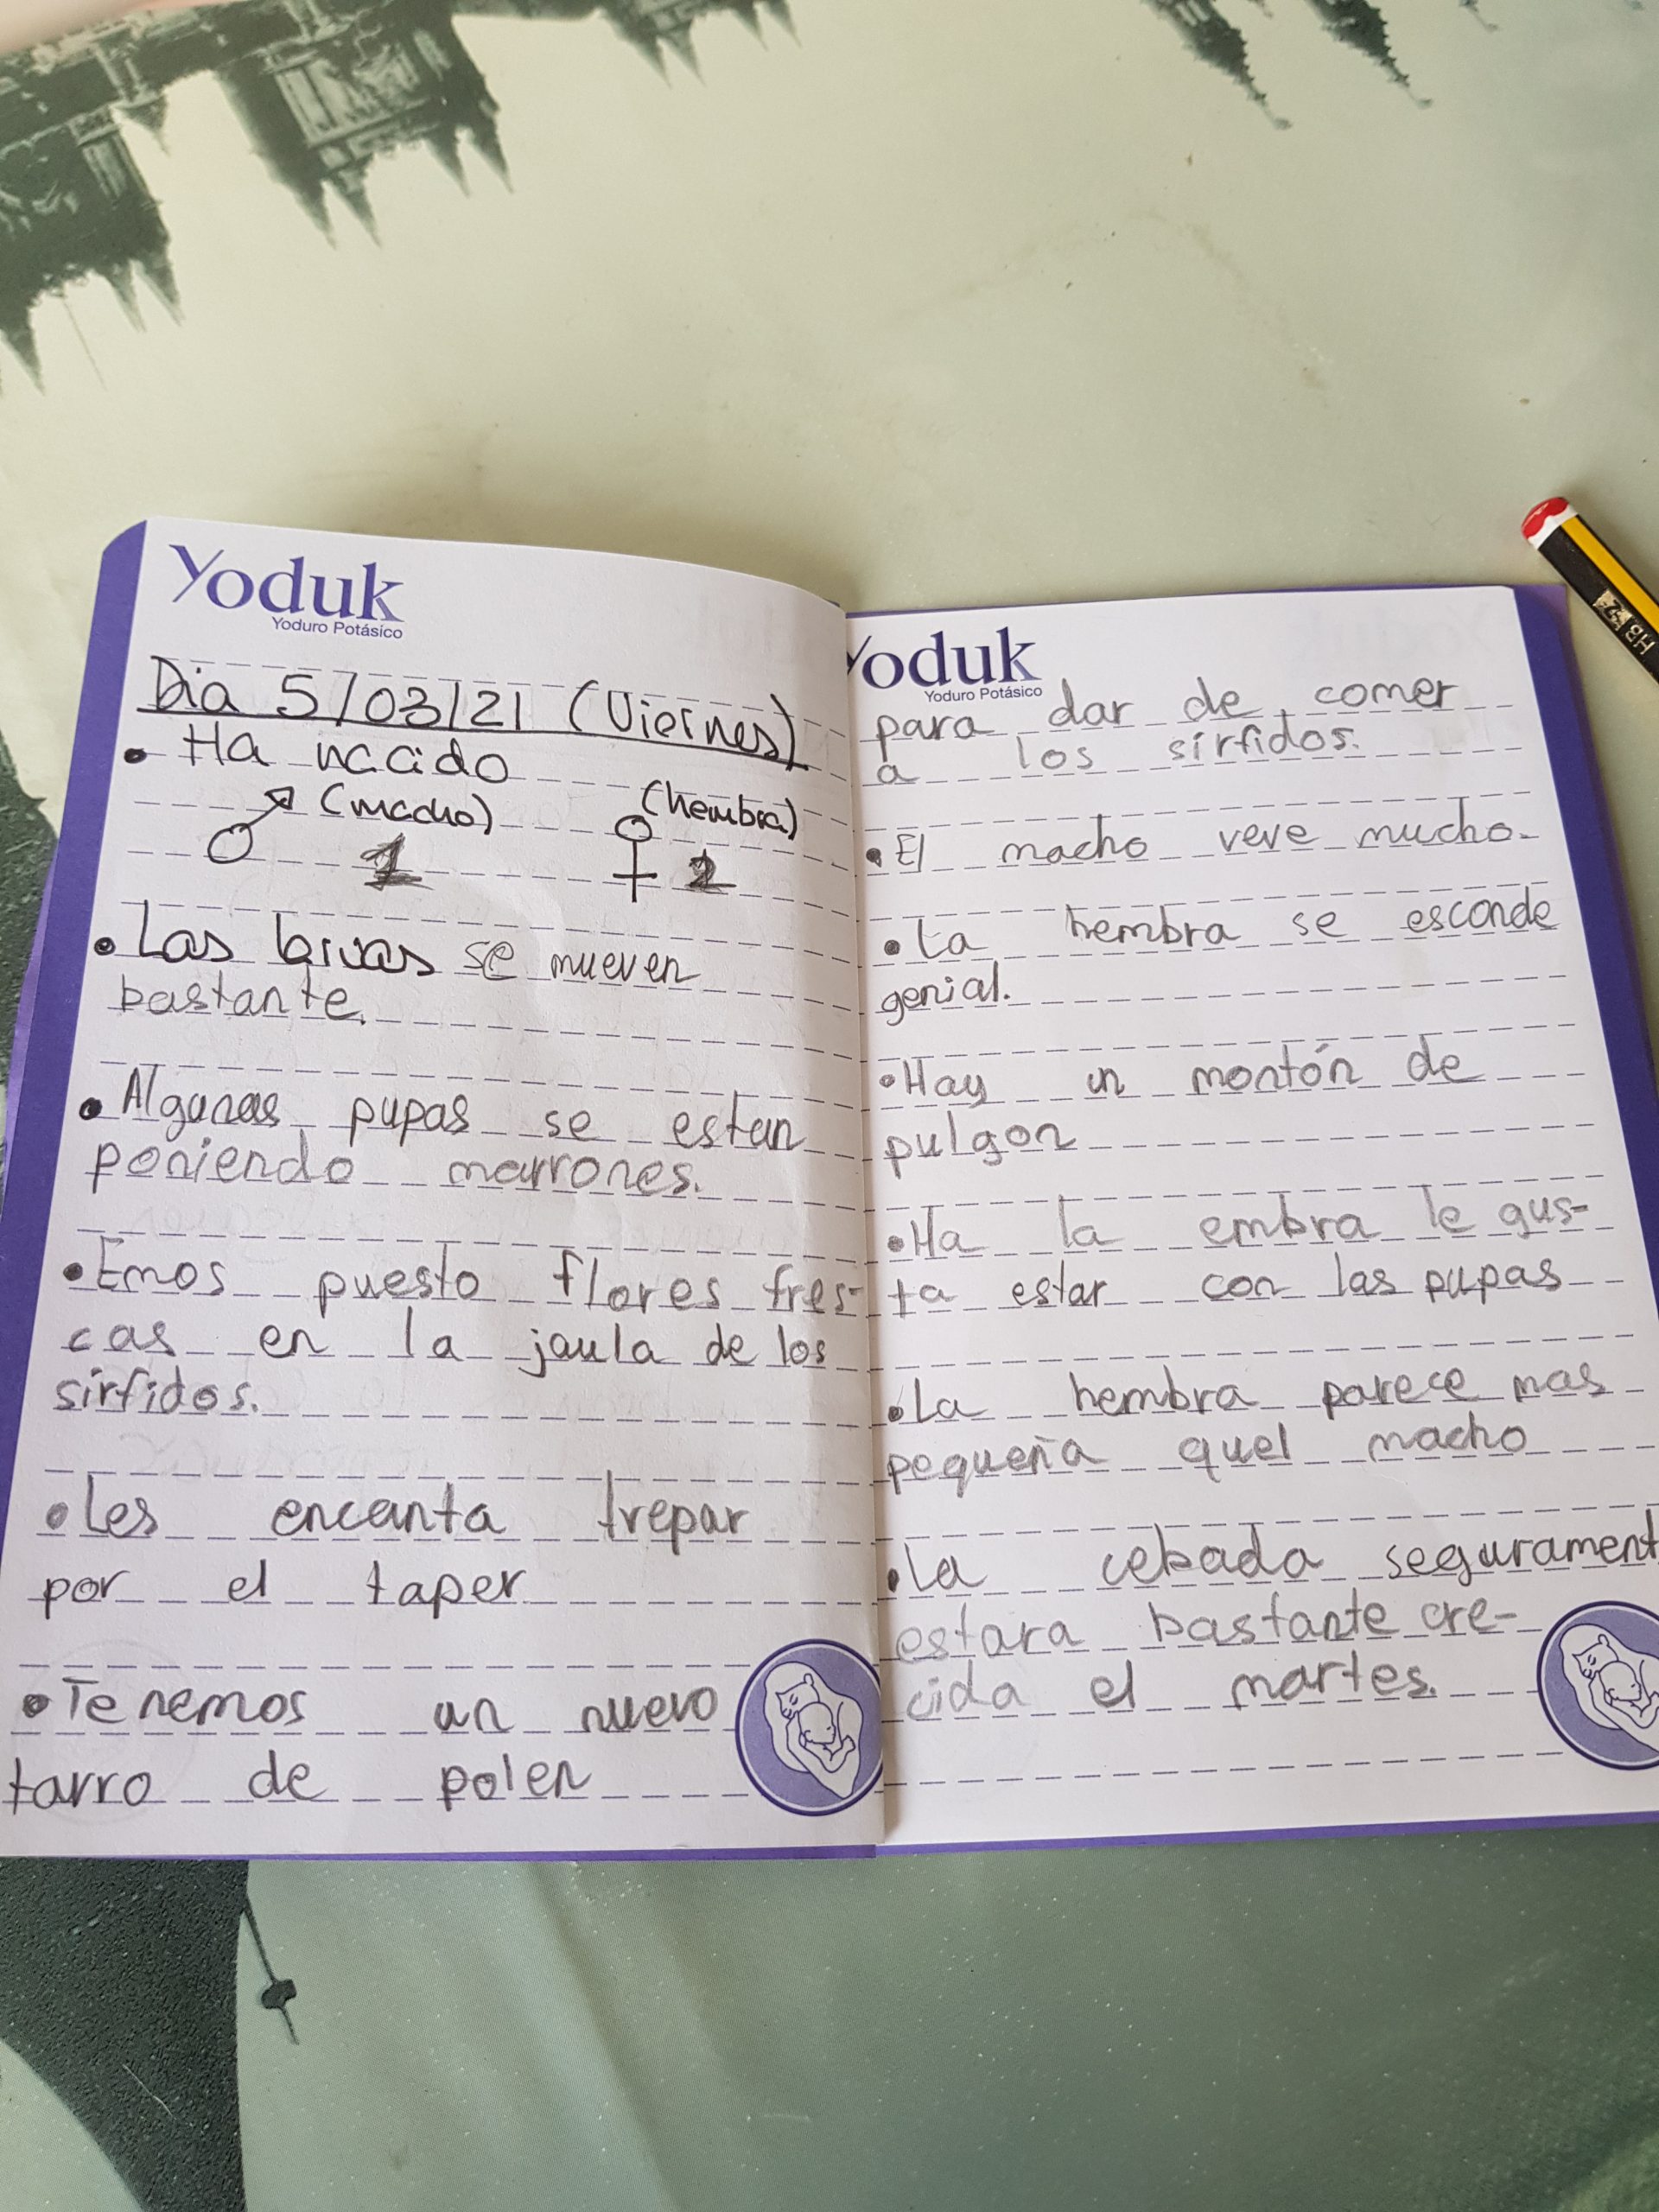 Yoduk
Yoduro Potásico
Dia 5/03/21 (Viernes)
• Ha nacido
♂ (macho) 1 ♀ (hembra) 2
• Las larvas se mueven
bastante.
• Algunas pupas se estan
poniendo marrones.
• Emos puesto flores fres-
cas en la jaula de los
sirfidos.
• Les encanta trepar
por el taper
• Tenemos un nuevo
tarro de polen
Yoduk
Yoduro Potásico
para dar de comer
a los sirfidos.
• El macho veve mucho.
• La hembra se esconde
genial.
• Hay un montón de
pulgon
• Ha la embra le gus-
ta estar con las pupas
• La hembra parece mas
pequeña quel macho
• La cebada segurament
estara bastante cre-
cida el martes.
HB 2